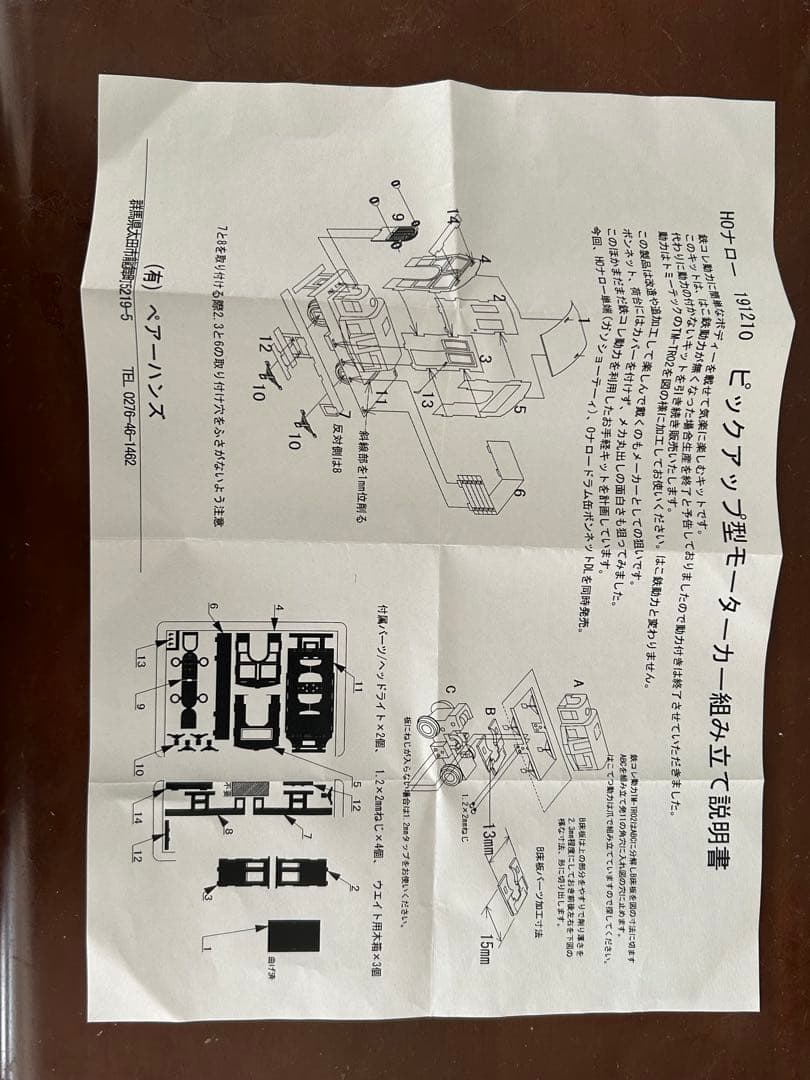 HOナロー 191210 ピックアップ型モーターカー組み立て説明書
鉄コレ動力に簡単なボディーを載せて気楽に楽しむキットです。
このキットは、はこ鉄動力が無くなった場合生産を終了と予告しておりましたので動力付きは終了させていただきました。
代わりに動力の付かないキットを引き続き販売いたします。
動力はトミーテックのTM-TR02を図の様に加工してお使いください。はこ鉄動力と変わりません。
この製品は改造や追加工して楽しんで戴くのもメーカーとしての狙いです。
ボンネット、荷台にはカバーを付けず、メカ丸出しの面白さも狙ってみました。
このほかまだまだ鉄コレ動力を利用したお手軽キットを計画しています。
今回、HOナロー単端(ガソショーティ)、Oナロードラム缶ボンネットDLを同時発売。
1
2
3
4
5
6
7 反対側は8
9
10
10
11
12
13
14
斜線部を1mm位削る
7と8を取り付ける際2,3と6の取り付け穴をふさがないよう注意
(有) ペアーハンズ
群馬県太田市龍舞町5219-5 TEL 0276-46-1462
鉄コレ動力TM-TR02はABCに分解しB床板を図の寸法に切ります
ABCを組み立て発11の角穴に入れ図の穴に止めます。
はこてつ動力は爪で組み立てていますので探してください。
A
B
C
1.2×2mmねじ
B床板は上の部分をやすりで削り厚さを
2.3mm程度にしておき前後左右を下図の
様な寸法、形に切り出します。
B床板パーツ加工寸法
13mm
15mm
板にねじが入らない場合は1.2mmタップをお使いください。
付属パーツ/ヘッドライト×2個、 1.2×2mmねじ×4個、 ウエイト用木箱×3個
4
6
11
13
9
10
5
12
不要
14
12
8
7
3
2
1
曲げ済